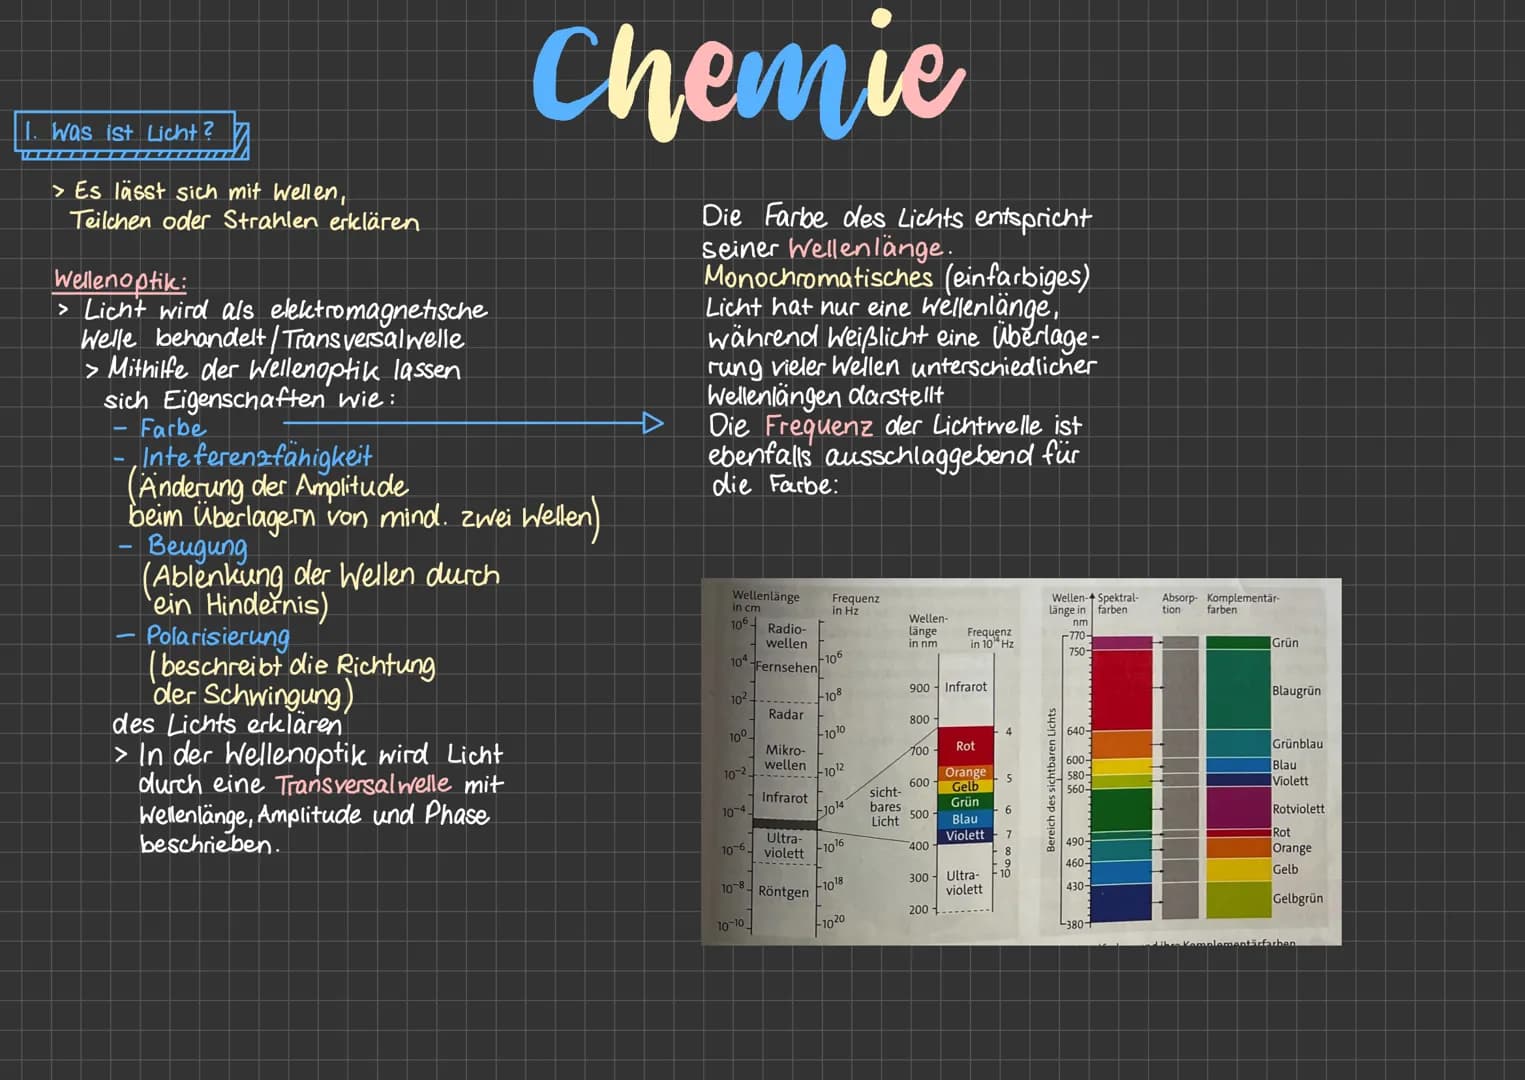 Chemie
1. Was ist Licht?
> Es lässt sich mit Wellen,
Teilchen oder Strahlen erklären
Wellenoptik:
> Licht wird als elektromagnetische
Welle behandelt/Transversalwelle
> Mithilfe der Wellenoptik lassen
sich Eigenschaften wie:
- Farbe
- Inteferenzfähigkeit
(Änderung der Amplitude
beim Überlagern von mind. zwei Wellen)
- Beugung
(Ablenkung der Wellen durch
ein Hindernis)
- Polarisierung
(beschreibt die Richtung
der Schwingung)
des Lichts erklären
> In der Wellenoptik wird Licht
durch eine Transversalwelle mit
Wellenlänge, Amplitude und Phase
beschrieben.
Die Farbe des Lichts entspricht
seiner Wellenlänge.
Monochromatisches (einfarbiges)
Licht hat nur eine Wellenlänge,
während Weißlicht eine Überlage-
rung vieler Wellen unterschiedlicher
Wellenlängen darstellt
Die Frequenz der Lichtwelle ist
ebenfalls ausschlaggebend für
die Farbe:
Wellenlänge
in cm
Frequenz
in Hz
10⁶
10⁴
10²
10⁰
10⁻²
10⁻⁴
10⁻⁶
10⁻⁸
10⁻¹⁰
Radio-
wellen
Fernsehen
Radar
Mikro-
wellen
Infrarot
Ultra-
violett
Röntgen
10⁶
10⁸
10¹⁰
10¹²
10¹⁴
10¹⁶
10¹⁸
10²⁰
sicht-
bares
Licht
Wellen-
länge
in nm
Frequenz
in 10¹⁴ Hz
900
800
700
600
500
400
300
200
Infrarot
Rot
Orange
Gelb
Grün
Blau
Violett
Ultra-
violett
4
5
6
7
8
9
10
Wellen-
länge in
nm
Spektral-
farben
Absorp-
tion
Komplementär-
farben
Bereich des sichtbaren Lichts
770
750
640
600
580
560
490
460
430
380
Grün
Blaugrün
Grünblau
Blau
Violett
Rotviolett
Rot
Orange
Gelb
Gelbgrün
ihre Komplementärfarben